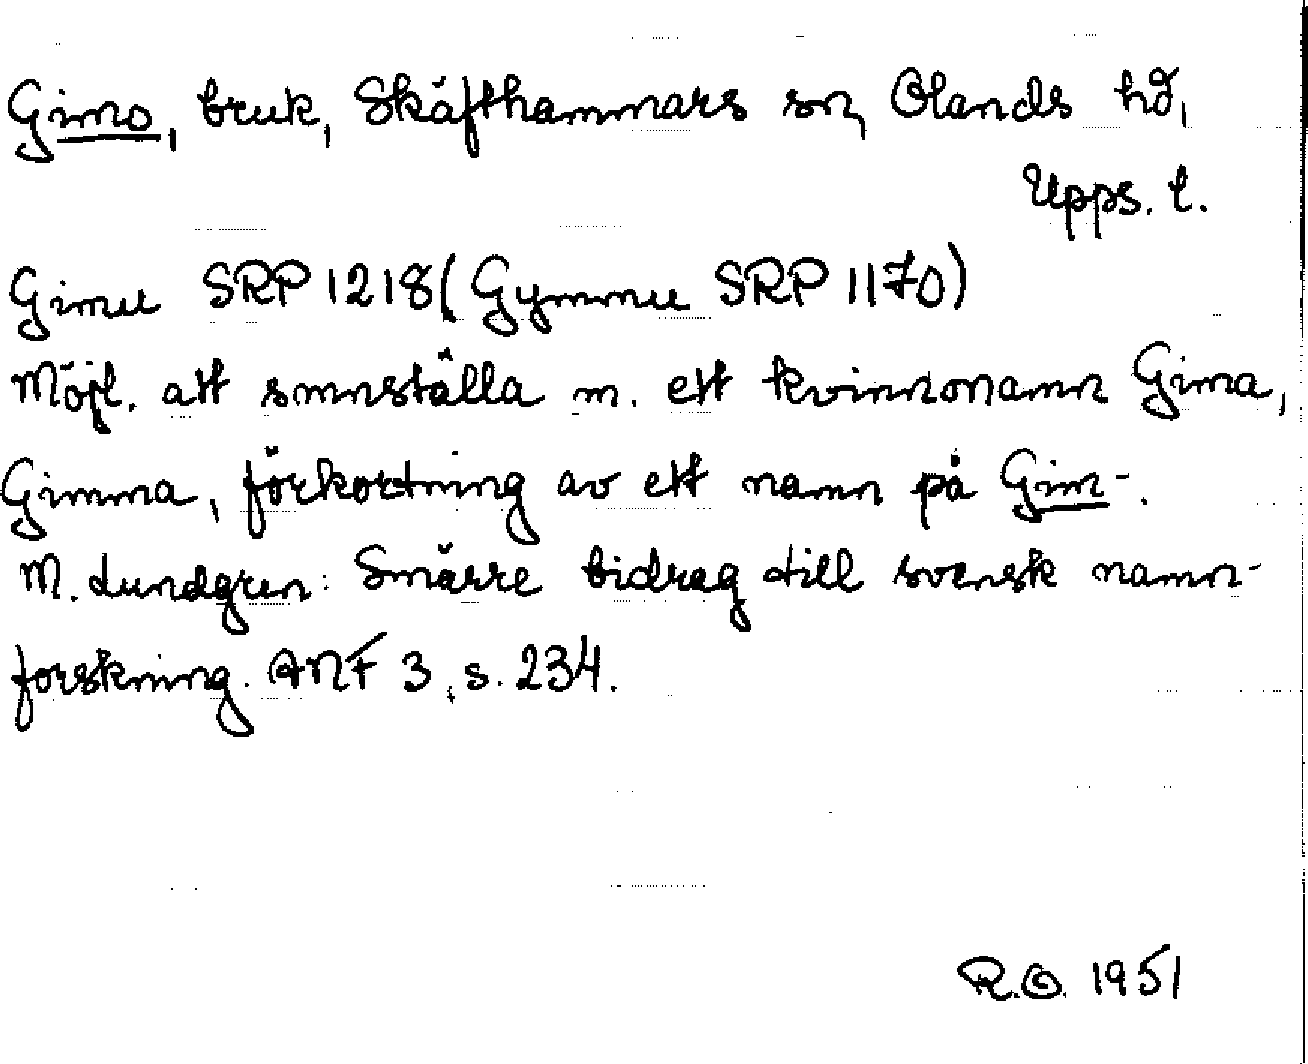 Gimo, bruk, Skäfthammars sn, Olands hd,
Upps. l.
Gimu SRP 1218 (Gymmu SRP 1170)
Möjl. att smnställa m. ett kvinnonamn Gima,
Gimma, förkortning av ett namn på Gim-.
M. Lundgren: Smärre bidrag till svensk namn-
forskning. ANF 3, s. 234.
R.O. 1951